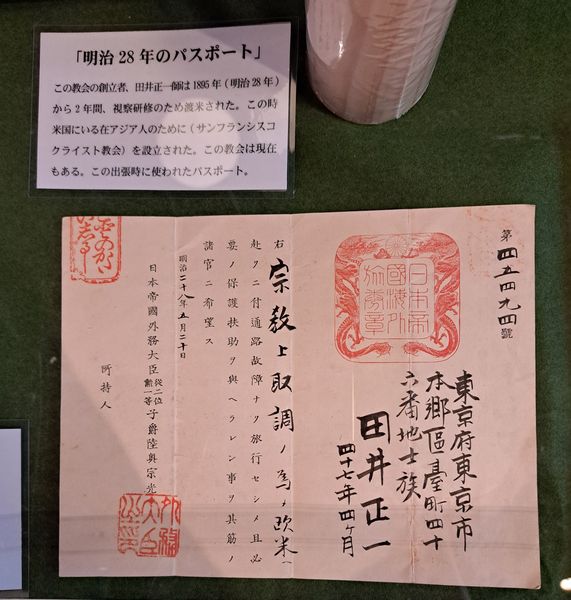 「明治28年のパスポート」
この教会の創立者、田井正一師は1895年(明治28年)
から2年間、視察研修のため渡米された。この時
米国にいる在アジア人のために(サンフランシスコ
クライスト教会)を設立された。この教会は現在
もある。この出張時に使われたパスポート。
第四五四九四號
日本帝
國海外
旅券章
東京府東京市
本郷區臺町四十
六番地士族
田井正一
四十七年四ヶ月
右宗教上取調ノ為メ欧米ヘ
赴クニ付通路故障ナク旅行セシメ且必
要ノ保護扶助ヲ與ヘラレン事ヲ其筋ノ
諸官ニ希望ス
明治二十八年五月二十日
日本帝國外務大臣從二位勳一等子爵陸奥宗光
外務
大臣
之印
所持人